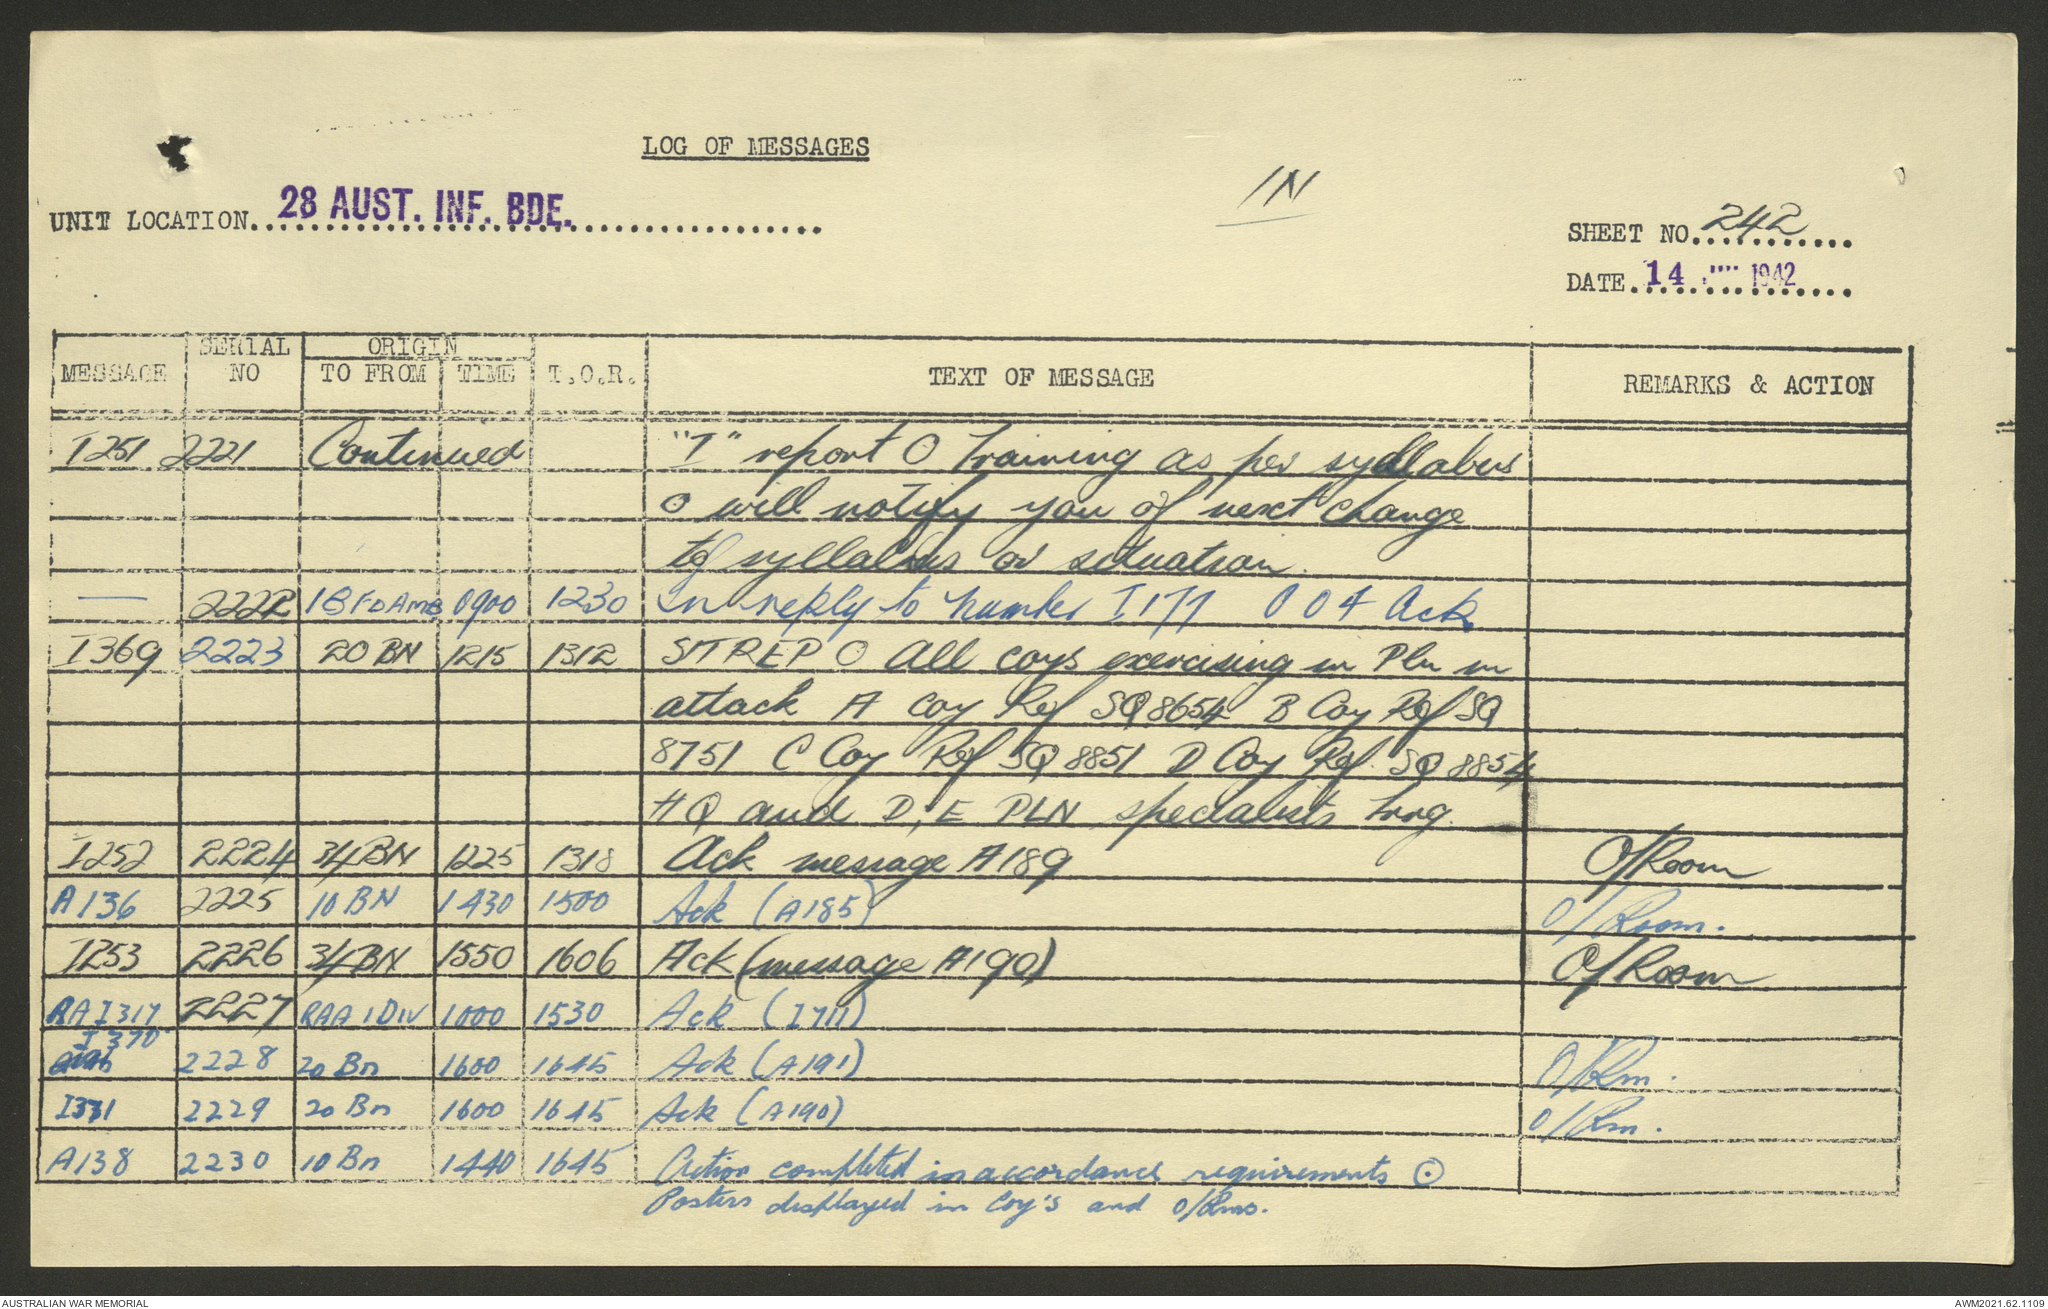 LOG OF MESSAGES
IN
UNIT LOCATION 28 AUST. INF. BDE.
SHEET NO. 242
DATE 14 1942
MESSAGE SERIAL NO ORIGIN TO FROM TIME T.O.R. TEXT OF MESSAGE REMARKS & ACTION
I251 2221 Continued "I" report O Training as per syllabus
O will notify you of next change
of syllabus or situation.
— 2222 1B FD AMB 0900 1230 In reply to number I177 004 Ack
I369 2223 20 BN 1215 1312 SITREP O All coys exercising in Pln in
attack A Coy Ref SQ 8654 B Coy Ref SQ
8751 C Coy Ref SQ 8851 D Coy Ref. SQ 8854
HQ and D, E PLN specialists trng.
I252 2224 34 BN 1225 1318 Ack message A189 O/Room
A136 2225 10 BN 1430 1500 Ack (A185) O/Room.
I253 2226 34 BN 1550 1606 Ack (message A190) O/Room
RA I317 2227 RAA 1 DIV 1000 1530 Ack (I711)
I370 2228 20 Bn 1600 1645 Ack (A191) O/Rm.
I371 2229 20 Bn 1600 1645 Ack (A190) O/Rm.
A138 2230 10 Bn 1440 1645 Action completed in accordance requirements O
Posters displayed in Coy's and O/Rms.
AUSTRALIAN WAR MEMORIAL
AWM2021.62.1109